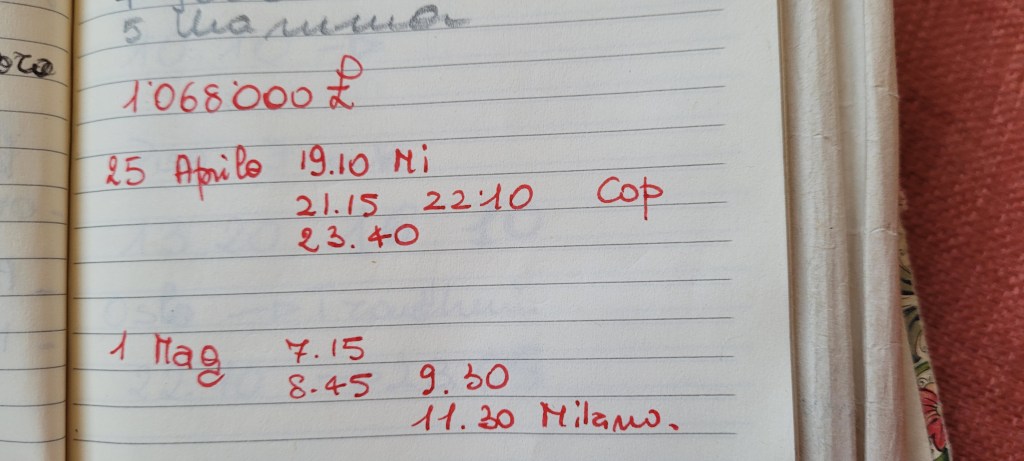 5
1'068'000 £
25 Aprile 19.10 Mi
21.15 22.10 Cop
23.40
1 Mag 7.15
8.45 9.30
11.30 Milano.